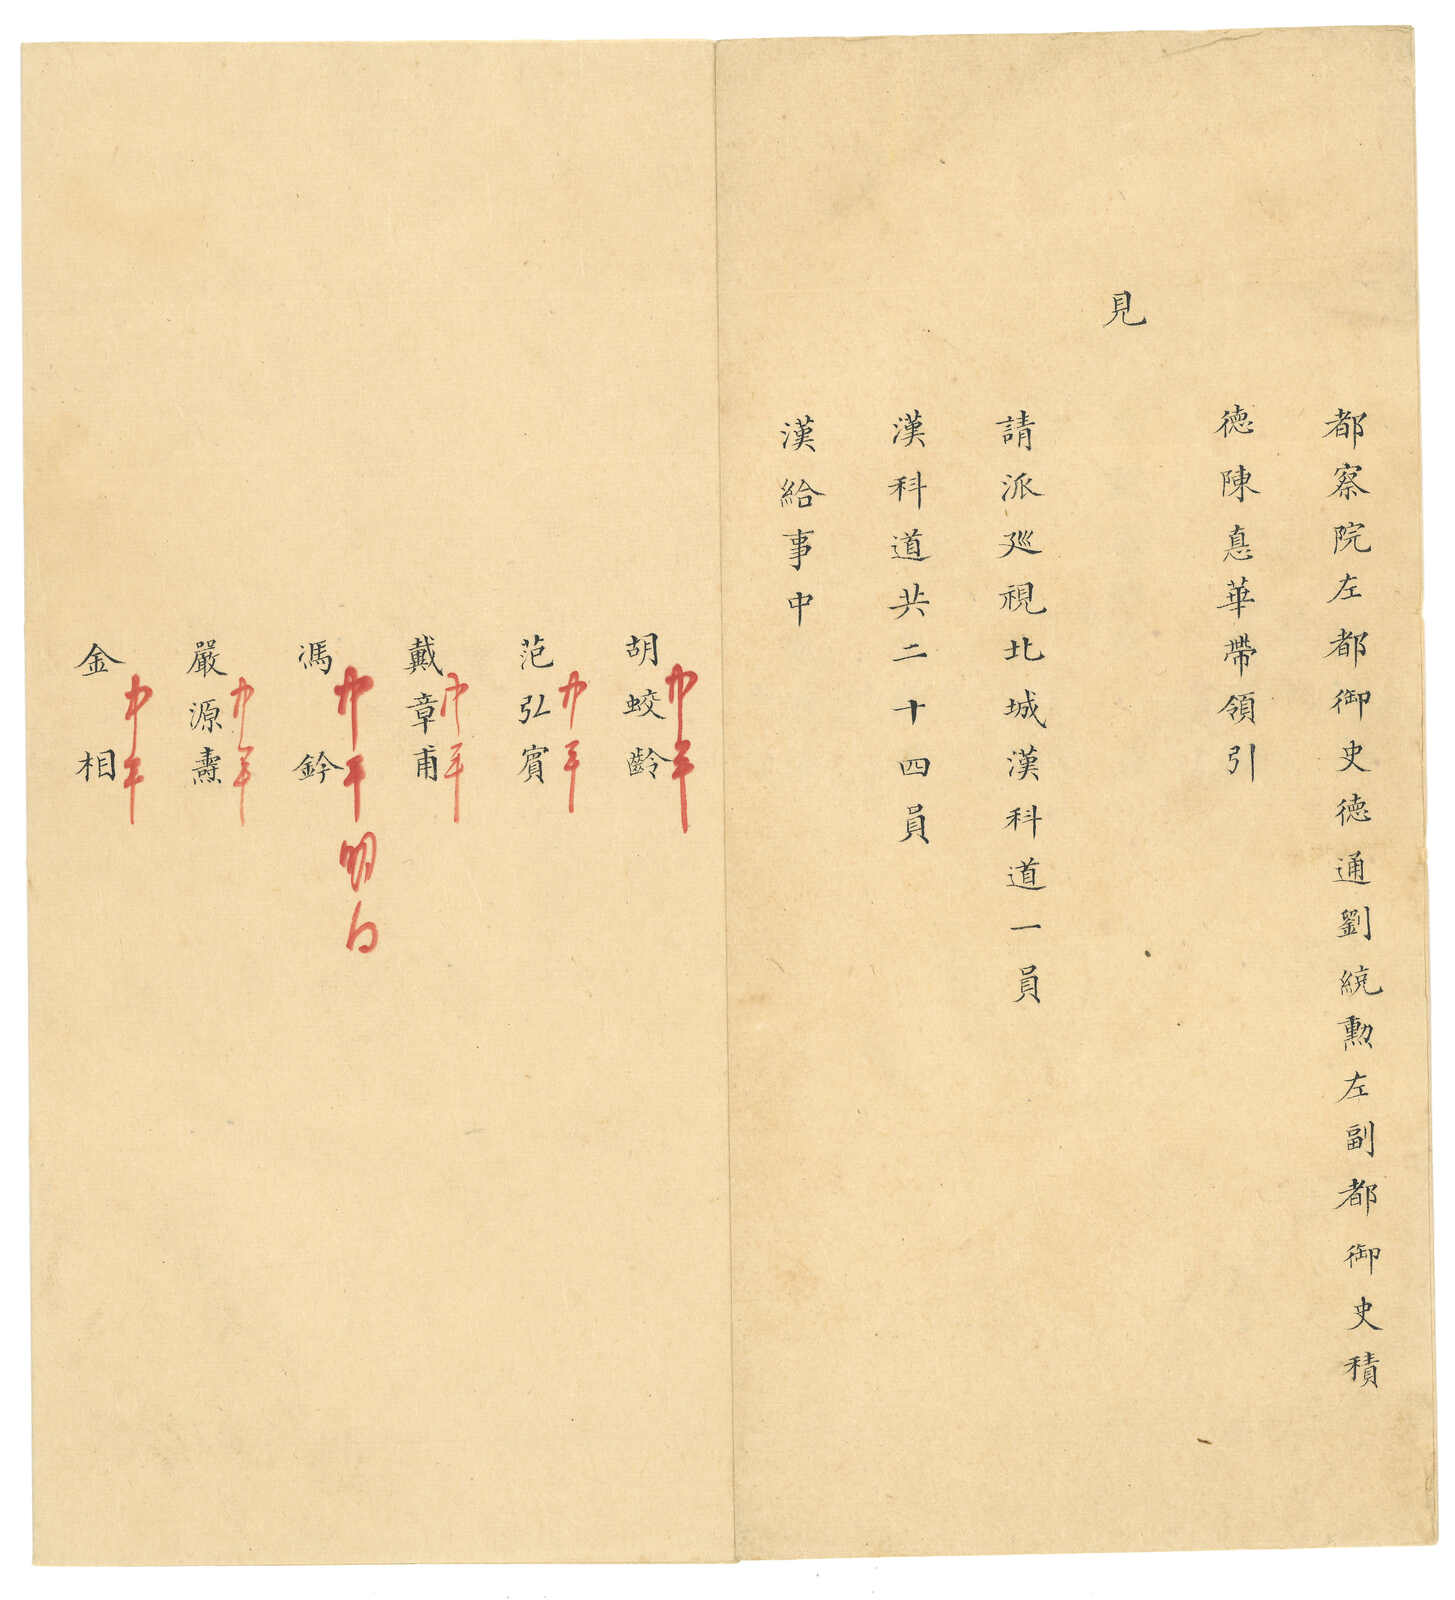 都察院左都御史德通劉統勲左副都御史積
德陳悳華帶領引
見
請派廵視北城漢科道一員
漢科道共二十四員
漢給事中
胡蛟齡
中平
范弘賓
中平
戴章甫
中平
馮鈐
中平明白
嚴源燾
中平
金相
中平